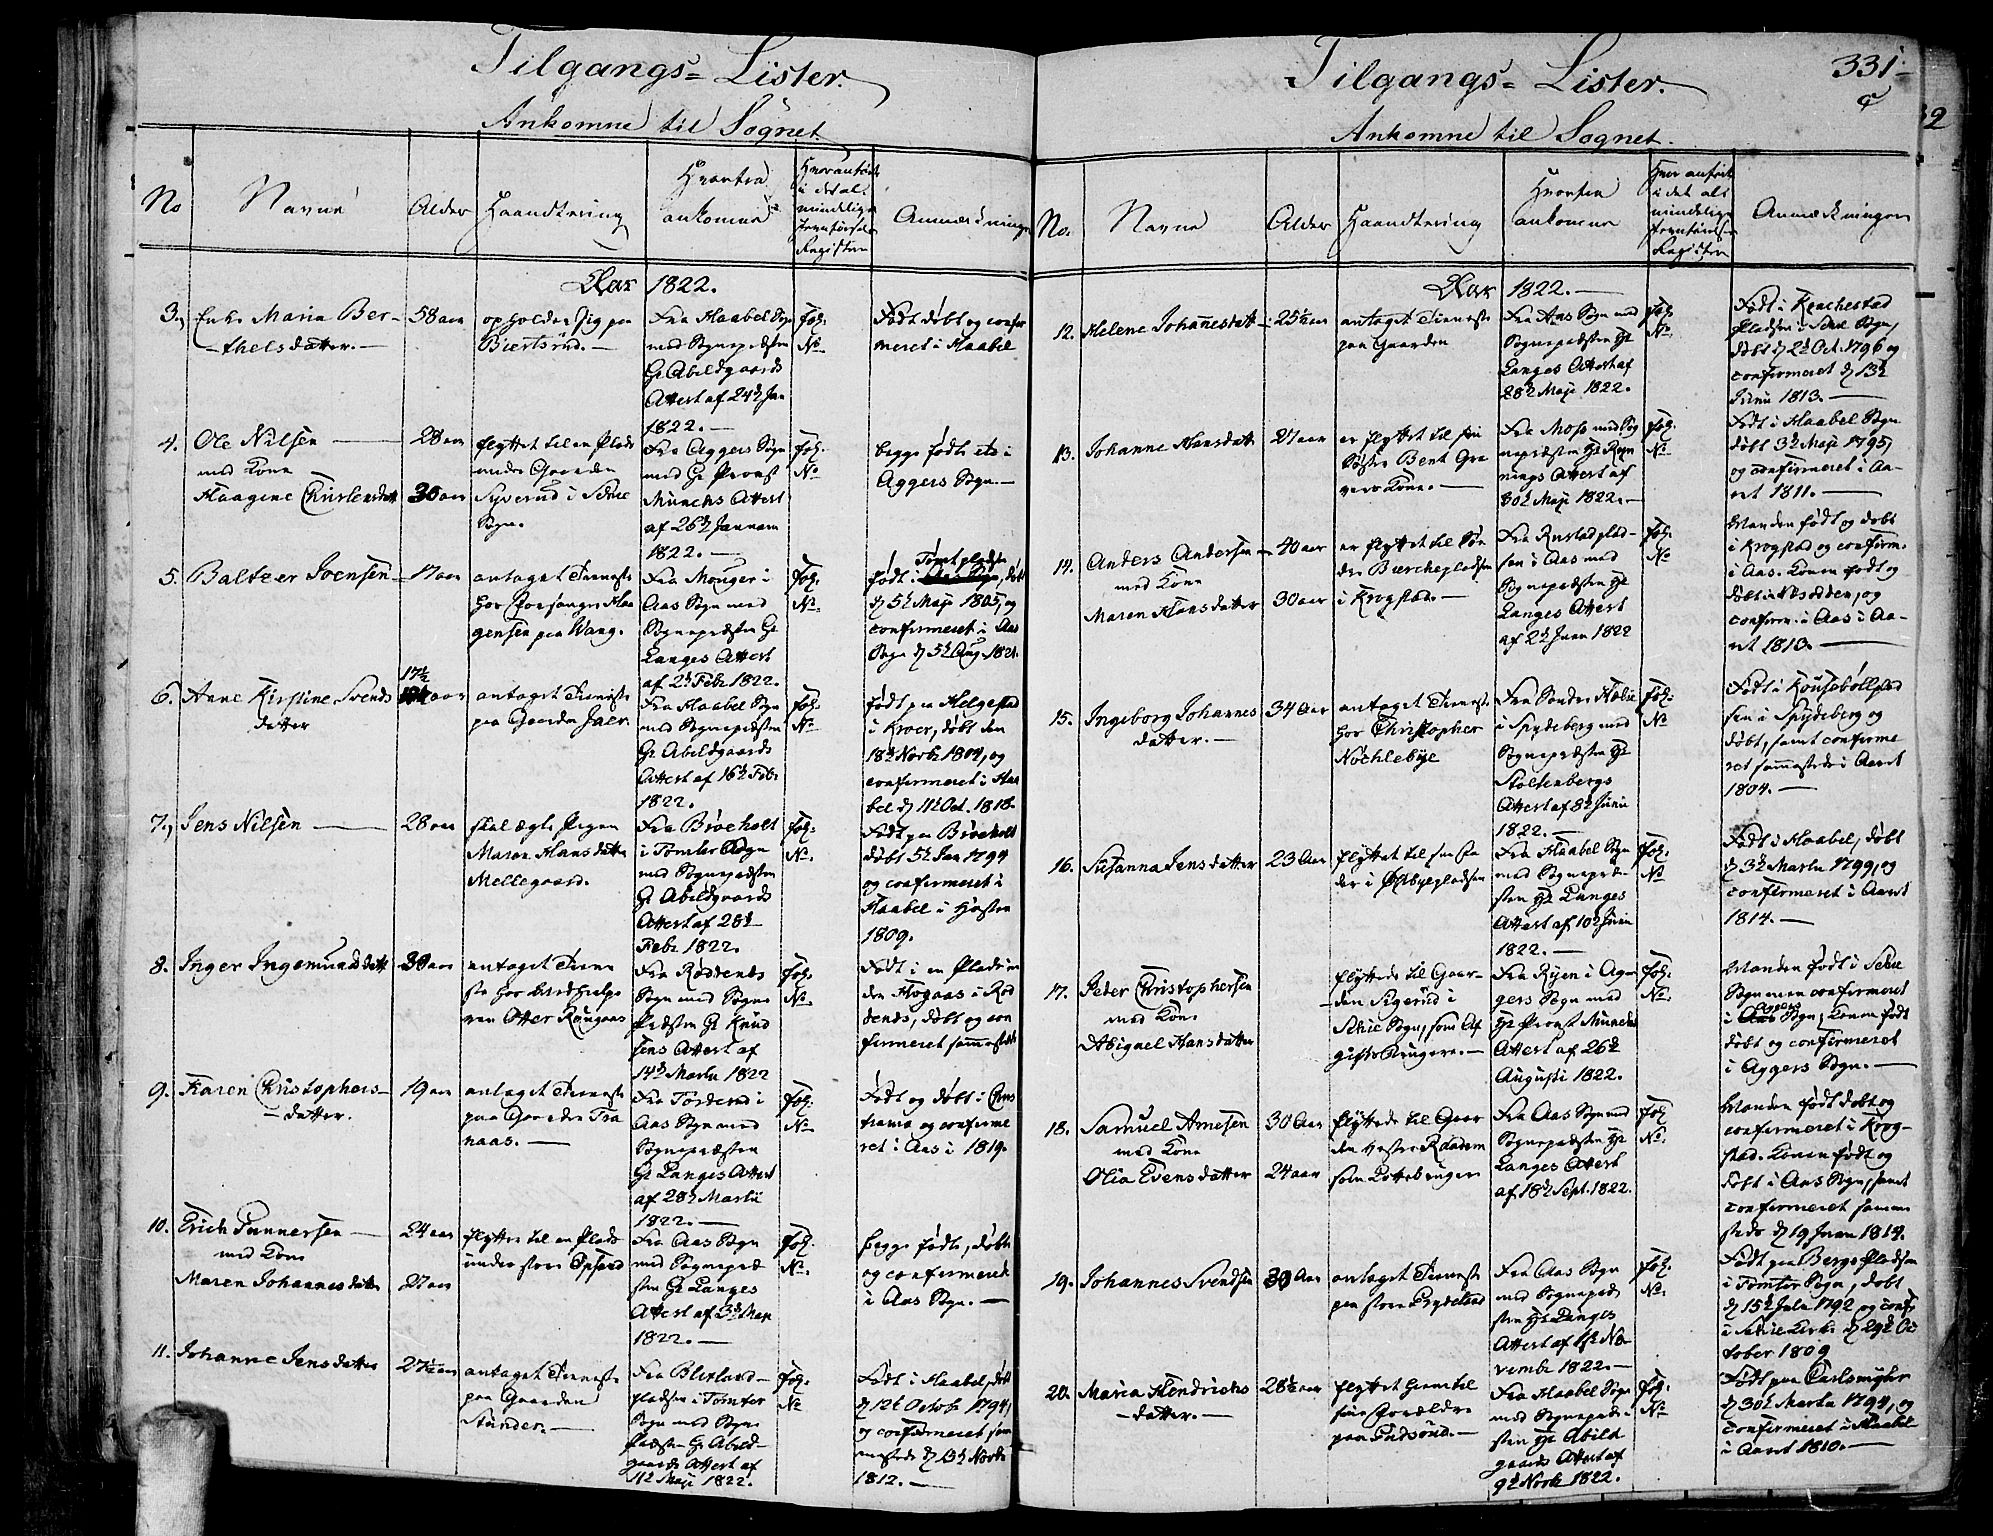 Tilgangs=Lister.
Ankomne til Sognet
No
Navne
Alder
Haandtering
Hvorfra
ankomne
Hvor anført
i det al-
mindelige
Jevnførelses
Register
Anmærkninger
Aar 1822.
3.,
Enke Maria Ber-
thelsdatter.
58 aar
opholder sig paa
Biertsrud.
Fra Haabel Sogn
med Sognepræsten
Hr Abildgaards
Attest af 24de Jan
1822.
Fol:
No
Født døbt og confir
meret i Haabel
4.
Ole Nilsen
med Kone
Haagine Christensdatt
28 aar
30 aar
flyttet til en Plads
under Gaarden
Syverud i Schie
Sogn.
Fra Aggers Sogn
med Hr Provst
Munchs Attest
af 26de Januari
1822.
Fol:
No
begge fødte etc i
Aggers Sogn.
5.
Baltzer Svensen
17 aar
antaget Tieneste
hos Forsanger Haa
gensen paa Wang.
Fra Monger i
Aas Sogn med
Sognepræsten Hr
Langes Attest
af 2de Febr 1822.
Fol:
No
Tomtpladsen
født i Aas Sogn, døbt
d 5te Maji 1805, og
confirmeret i Aas
Sogn d 5te Aug. 1821.
6.
Anne Kirstine Svends
datter
17½
aar
antaget Tieneste
paa Gaarden Jaer.
Fra Haabel Sogn
med Sognepræsten
Hr Abildgaards
Attest af 16de Febr
1822.
Fol:
No
født paa Helgestad
i Kroer, døbt den
18de Novbr 1804, og
confirmeret i Haa
bel d 11te Oct. 1818.
7.,
Jens Nilsen
28 aar
skal ægte Pigen
Maren Hansdatter
Mellegaard.
Fra Brøeholt
i Tomter Sogn
med Sognepræsten
Hr Abildgaards
Attest af 28de
Febr 1822.
Fol:
No.
Født paa Brøeholt
døbt 5te Jan 1794
og confirmeret i
Haabel i Høsten
1809.
8.
Inger Ingemundsdatt
30 aar
antaget Tiene
ste hos Medhielpe
ren Otter Raugaas
Fra Rødenes
Sogn med Sogne
Præsten Hr Knud
sens Attest af
14de Martii 1822
Fol:
No.
Født i en Plads un
der Hogaas i Rø
denes, døbt og con
firmeret sammesteds
9.
Karen Christophers-
datter.
19 aar
antaget Tieneste
paa Gaarden Tra
naas.
Fra Torderud i
Aas Sogn med
Sognepræsten
Hr Langes Attest
af 28de Martii
1822.
Fol:
No.
Født og døbt i Chris
tiania og confirme
ret i Aas i 1819.
10.
Erich Gunnersen
med Kone
Maren Johannesdatter
24 aar
27 aar
flytter til en Plads
under store Opsand
Fra Aas Sogn
med Sognepræ
sten Hr Langes
Attest af 3de Maji
1822.
Fol:
No.
begge fødte, døbte
og confirmeret
i Aas Sogn.
11.
Johanne Jensdatter
27½ aar
antaget Tieneste
paa Gaarden
Stunder.
Fra Blixland-
pladsen i Tomter
Sogn med Sogne
Præsten Hr Abild-
gaards Attest af
11te Maji 1822.
Fol:
No
Født i Haabel, døbt
d 12te Octobr 1794,
og confirmeret sam
mesteds d 15de Novbr
1812.
Tilgangs=Lister.
331
Ankomne til Sognet.
No.
Navne
Alder
Haandtering
Hvorfra
ankomne
Hvor anført
i det al
mindelige
Jevnførelses
Register
Anmærkninger
Aar 1822.
12.
Helene Johanesdatt
25½ aar
antaget Tieneste
paa Gaarden
Fra Aas Sogn med
Sognepræsten Hr
Langes Attest af
28de Maji 1822.
Fol:
No.
Født i Krachestad
pladsen i Schie Sogn,
døbt d 2de Oct. 1796 og
confirmeret d 13de
Junii 1813.
13.
Johanne Hansdatt
27 aar
er flyttet til sin
Søster Bent Gra
vers Kone.
Fra Moss med Sog
nepræsten Hr
Attest af
30te Maji 1822.
Fol:
No
Født i Haabel Sogn
døbt 3de Maji 1795,
og confirmeret i Aa-
ret 1811.
14.
Anders Andersen
med Kone
Maren Hansdatter
40 aar
30 aar
er flyttet til Søn
dre Bierchepladsen
i Krogstad.
Fra Rustadplad-
sen i Aas med
Sognepræsten Hr
Langes Attest
af 2de Juni 1822
Fol:
No
Manden født og døbt
i Krogstad og confirm.
i Aas. Konen født og
døbt i Nesodden, og
confirm. i Aas i Aa-
ret 1813.
15.
Ingeborg Johannes
datter.
34 Aar
antaget Tieneste
hos Christopher
Nøchlebye
Fra Sondre Hobie
i Spydeberg med
Sognepræsten Hr
Stoltenbergs
Attest af 8de Junii
1822.
Fol:
No
Født i Knusebøllplad
sen i Spydeberg og
døbt, samt confirme
ret sammesteds i Aaret
1804.
16.
Susanna Jensdatter
23 Aar
flyttet til sin Fa
der i Østbyepladsen
Fra Haabel Sogn
med Sognepræ-
sten Hr Langes
Attest af 10de Junii
1822.
Fol:
No
Født i Haabel, døbt
d 3de Martii 1799, og
confirmeret i Aaret
1814.
17.
Peder Christophersen
med Kone
Abigael Hansdatter
flyttede til Gaar-
den Sigerud i
Schie Sogn, som Af
gifts Bruger.
Fra Ryen i Ag-
gers Sogn med
Hr Provst Munchs
Attest af 26de
Augusti 1822.
Fol:
No.
Manden født i Schie
Sogn men confirmeret
i Aas Sogn, Konen født
døbt og confirmeret
i Aggers Sogn.
18.
Samuel Arnesen
med Kone
Olia Evensdatter
30 Aar
24 aar
flyttede til Gaar
den Vestre Raaden
som Lottebruger
Fra Aas Sogn med
Sognepræsten Hr
Langes Attest
af 18de Sept. 1822.
Fol:
No.
Manden født døbt og
confirmeret i Krog-
stad. Konen født og
døbt i Aas Sogn, samt
confirmeret samme
steds d 19 Juni 1814.
19.
Johannes Svendsen
30 Aar
antaget Tieneste
paa store Frydeland
Fra Aas Sogn
med Sognepræ
sten Hr Langes
Attest af 1ste No-
vembr 1822.
Fol:
No.
Født paa Bergs Pladsen
i Tomter Sogn, døbt
d 15de Julii 1792 og confr
i Schie Kirke d 29de Oc
tober 1809
20.
Maria Hendrichs
datter.
28½ aar
flyttet hiem til
sine Forældre
paa Gudsund.
Fra Haabel Sogn
med Sognepræ-
sten Hr Abild
gaards Attest af
9de Novbr 1822.
Fol:
No
Født paa Carlsmyhr
d 30te Martii 1794, og
confirmeret i Haabel
i Aaret 1810.